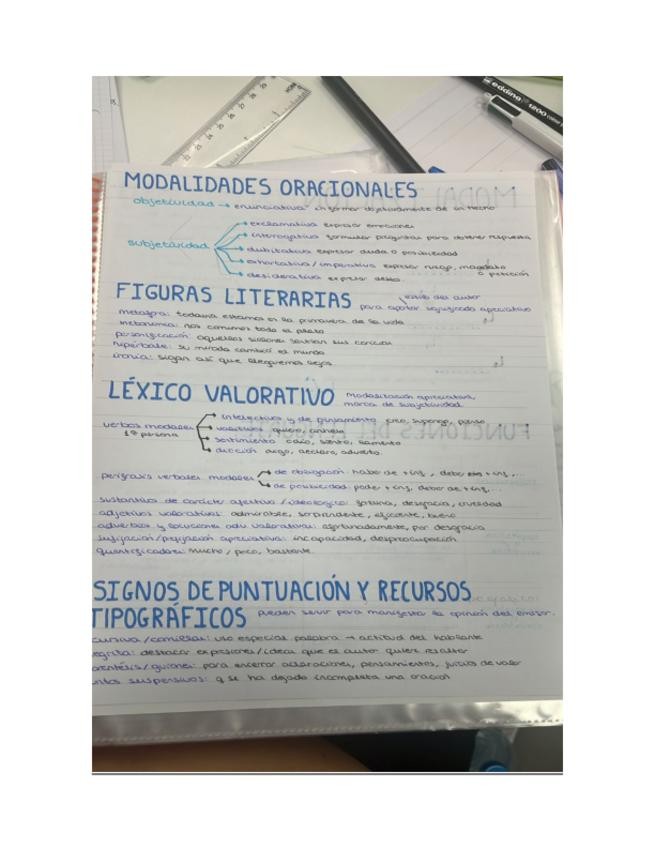 MODALIDADES ORACIONALES
objetividad → enunciativa: informar objetivamente de un hecho
subjetividad
exclamativa expresar emociones
interrogativa formular preguntas para obtener respuesta
dubitativa expresar duda o posibilidad
exhortativa / imperativa expresar ruego, mandato o petición
desiderativa expresar deseo.
FIGURAS LITERARIAS
estilo del autor
para aportar significado apreciativo
metáfora: todavía estamos en la primavera de la vida
metonimia: nos comimos todo el plato
personificación: aquellos sillones sentían sus caricias
hipérbole: su mirada cambió el mundo
ironía: sigan así que llegaremos lejos
LÉXICO VALORATIVO
Modalización apreciativa,
marca de subjetividad
verbos modales
1ª persona
intelectivos y de pensamiento: creo, supongo, pienso
volitivos: quiero, anhelo
sentimiento: odio, siento, lamento
dicción: digo, aclaro, advierto.
perífrasis verbales modales
de obligación: haber de + inf., deber + inf,...
de posibilidad: poder + inf, deber de + inf,...
sustantivos de carácter afectivo / ideológico: fortuna, desgracia, crueldad
adjetivos valorativos: admirable, sorprendente, eficiente, bueno
adverbios y locuciones adv valorativas: afortunadamente, por desgracia
sufijación/prefijación apreciativa: incapacidad, despreocupación
quantificadores: mucho, poco, bastante.
SIGNOS DE PUNTUACIÓN Y RECURSOS
TIPOGRÁFICOS pueden servir para manifestar la opinión del emisor.
cursiva / comillas: uso especial palabra → actitud del hablante
egrita: destacar expresiones/ideas que el autor quiere resaltar
réntesis / guiones: para encerrar aclaraciones, pensamientos, juicios de valor
ntos suspensivos: q se ha dejado incompleta una oración
edding 1200